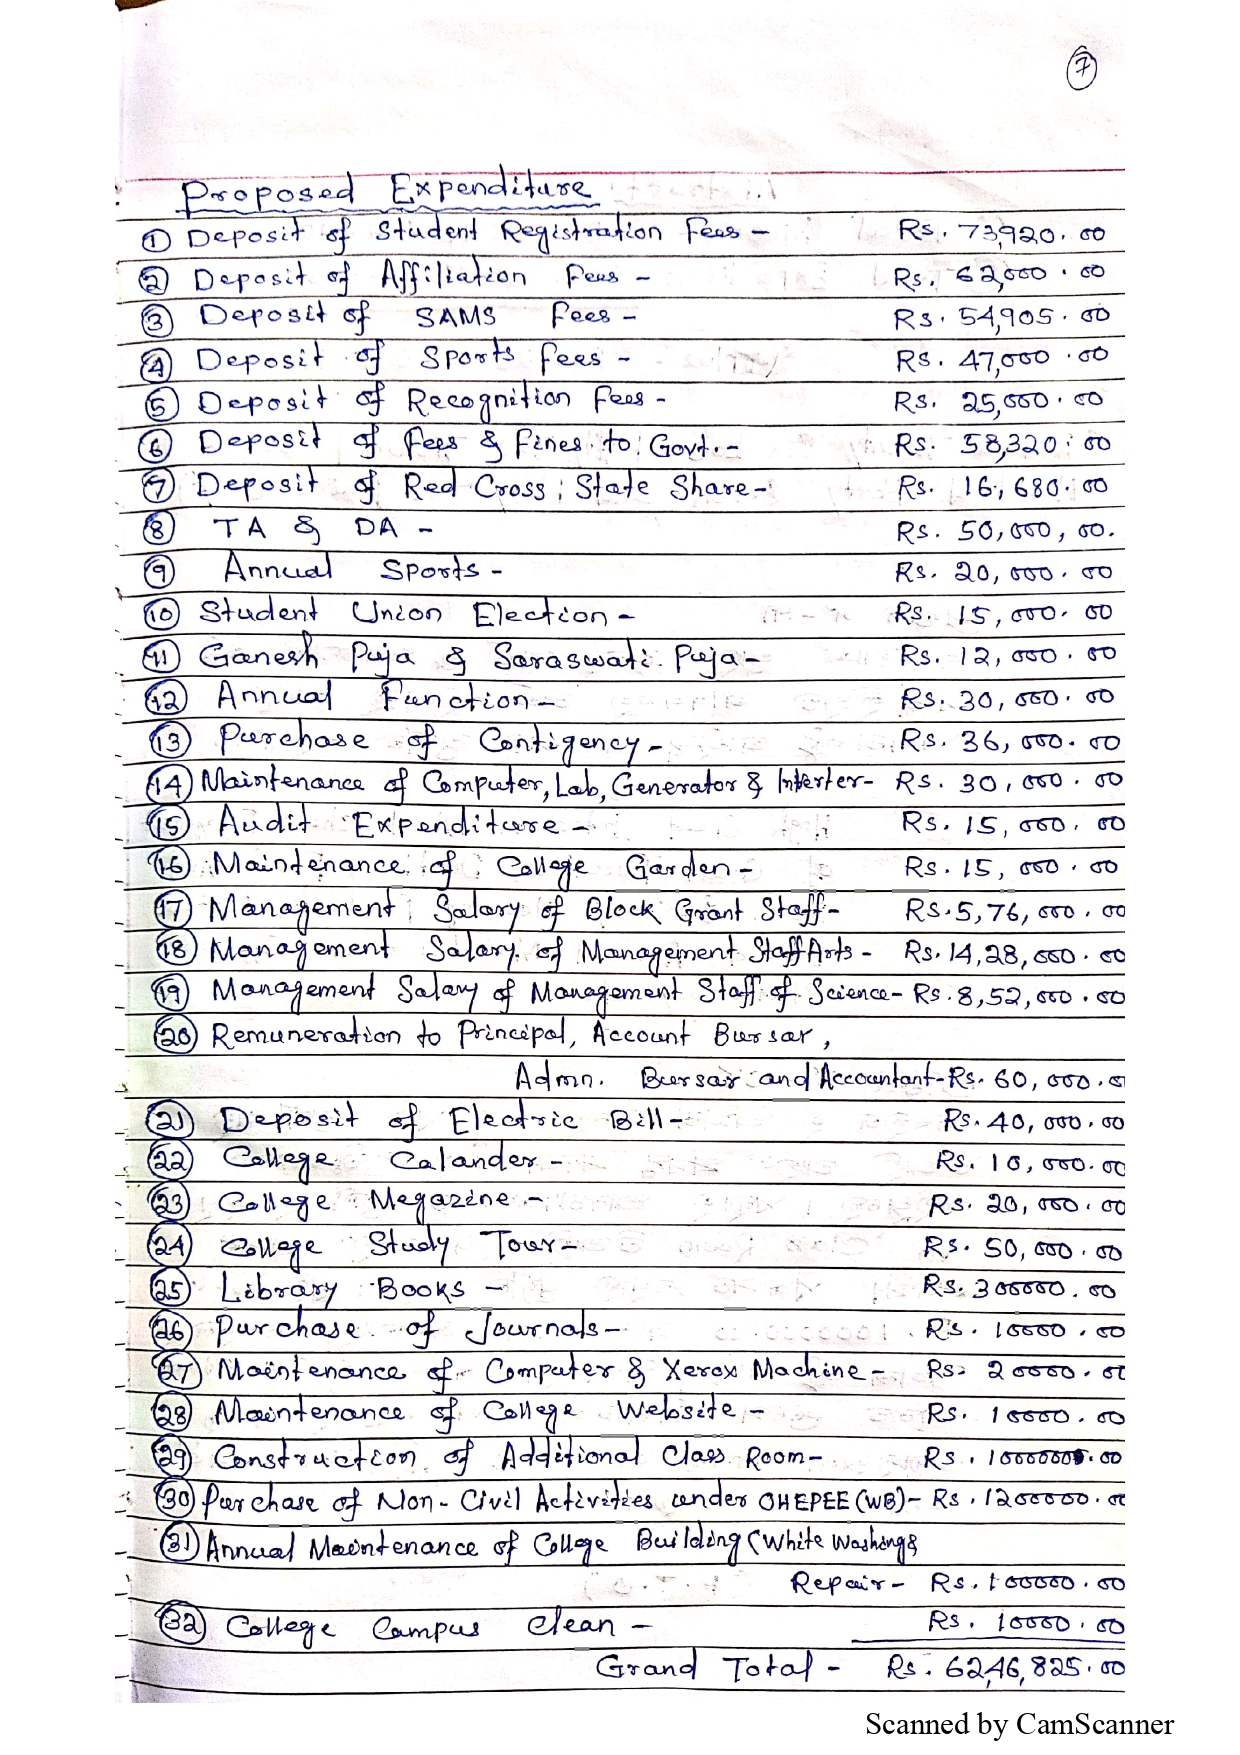 7
Proposed Expenditure
1 Deposit of Student Registration Fees - Rs. 73,920.00
2 Deposit of Affiliation Fees - Rs. 62,000.00
3 Deposit of SAMS Fees - Rs. 54,905.00
4 Deposit of Sports fees - Rs. 47,000.00
5 Deposit of Recognition fees - Rs. 25,000.00
6 Deposit of fees & fines to Govt. - Rs. 58,320.00
7 Deposit of Red Cross State Share - Rs. 16,680.00
8 TA & DA - Rs. 50,000,00.
9 Annual Sports - Rs. 20,000.00
10 Student Union Election - Rs. 15,000.00
11 Ganesh Puja & Saraswati Puja - Rs. 12,000.00
12 Annual Function - Rs. 30,000.00
13 Purchase of Contigency - Rs. 36,000.00
14 Maintenance of Computer, Lab, Generator & Interter - Rs. 30,000.00
15 Audit Expenditure - Rs. 15,000.00
16 Maintenance of College Garden - Rs. 15,000.00
17 Management Salary of Block Grant Staff - Rs. 5,76,000.00
18 Management Salary of Management Staff Arts - Rs. 14,28,000.00
19 Management Salary of Management Staff of Science - Rs. 8,52,000.00
20 Remuneration to Principal, Account Bursar,
Admn. Bursar and Accountant - Rs. 60,000.0
21 Deposit of Electric Bill - Rs. 40,000.00
22 College Calander - Rs. 10,000.00
23 College Megazine - Rs. 20,000.00
24 College Study Tour - Rs. 50,000.00
25 Library Books - Rs. 300000.00
26 Purchase of Journals - Rs. 10000.00
27 Maintenance of Computer & Xerox Machine - Rs. 20000.00
28 Maintenance of College Website - Rs. 10000.00
29 Construction of Additional Class Room - Rs. 1000000.00
30 Purchase of Non-Civil Activities under OHEPEE (WB) - Rs. 1200000.00
31 Annual Maintenance of College Building (White Washing &
Repair - Rs. 100000.00
32 College Campus Clean - Rs. 10000.00
Grand Total - Rs. 6246,825.00
Scanned by CamScanner